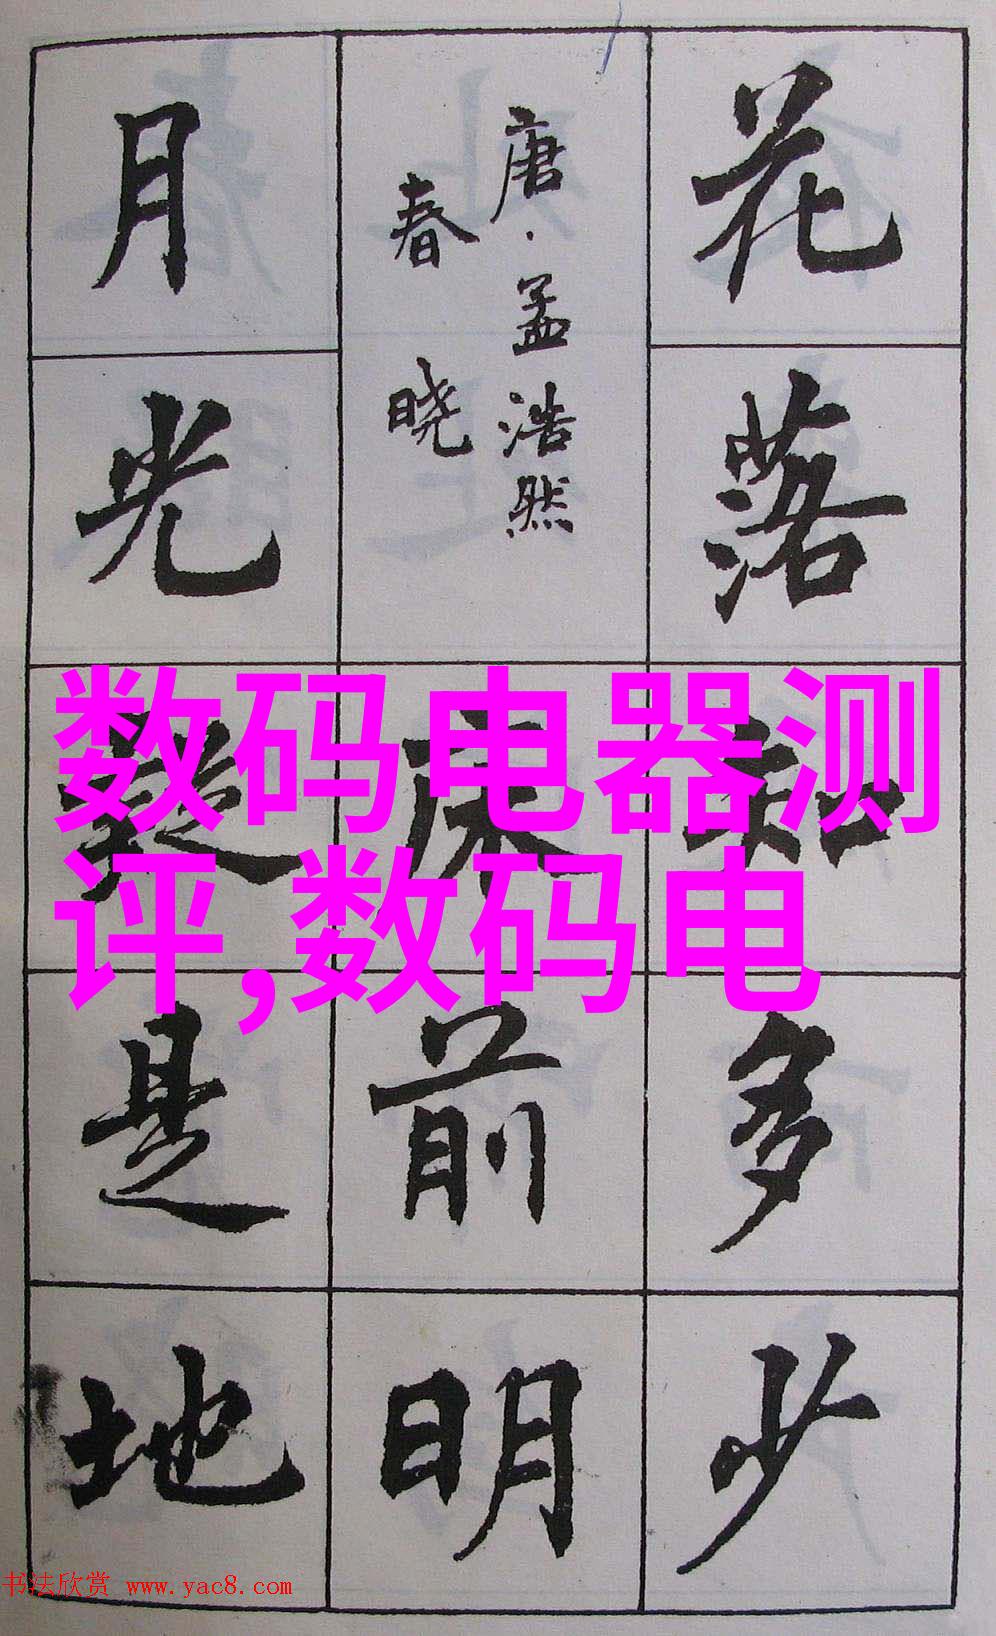 花落知多少
唐·孟浩然
春晓
床前明
月光疑是地
数码电器测
评,数码电
书法欣赏 www.yac8.com